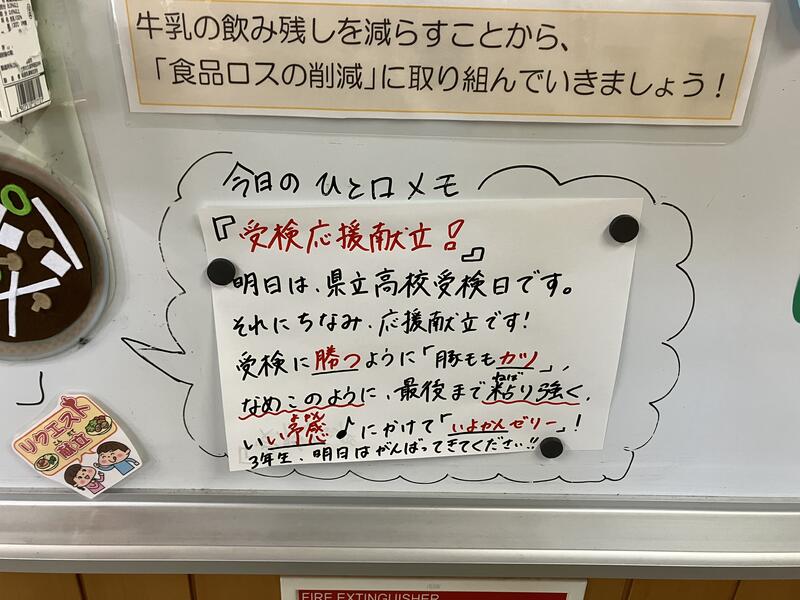 牛乳の飲み残しを減らすことから、
「食品ロスの削減」に取り組んでいきましょう！
今日の ひと口メモ
『受検応援献立！』
明日は、県立高校受検日です。
それにちなみ、応援献立です！
受検に勝つように「豚ももカツ」、
なめこのように、最後まで粘り強く、
ねば
いい予感♪にかけて「いよかんゼリー」！
よかん
3年生、明日はがんばってきてください!!
リクエスト
献立
こんだて
FIRE EXTINGUISHER